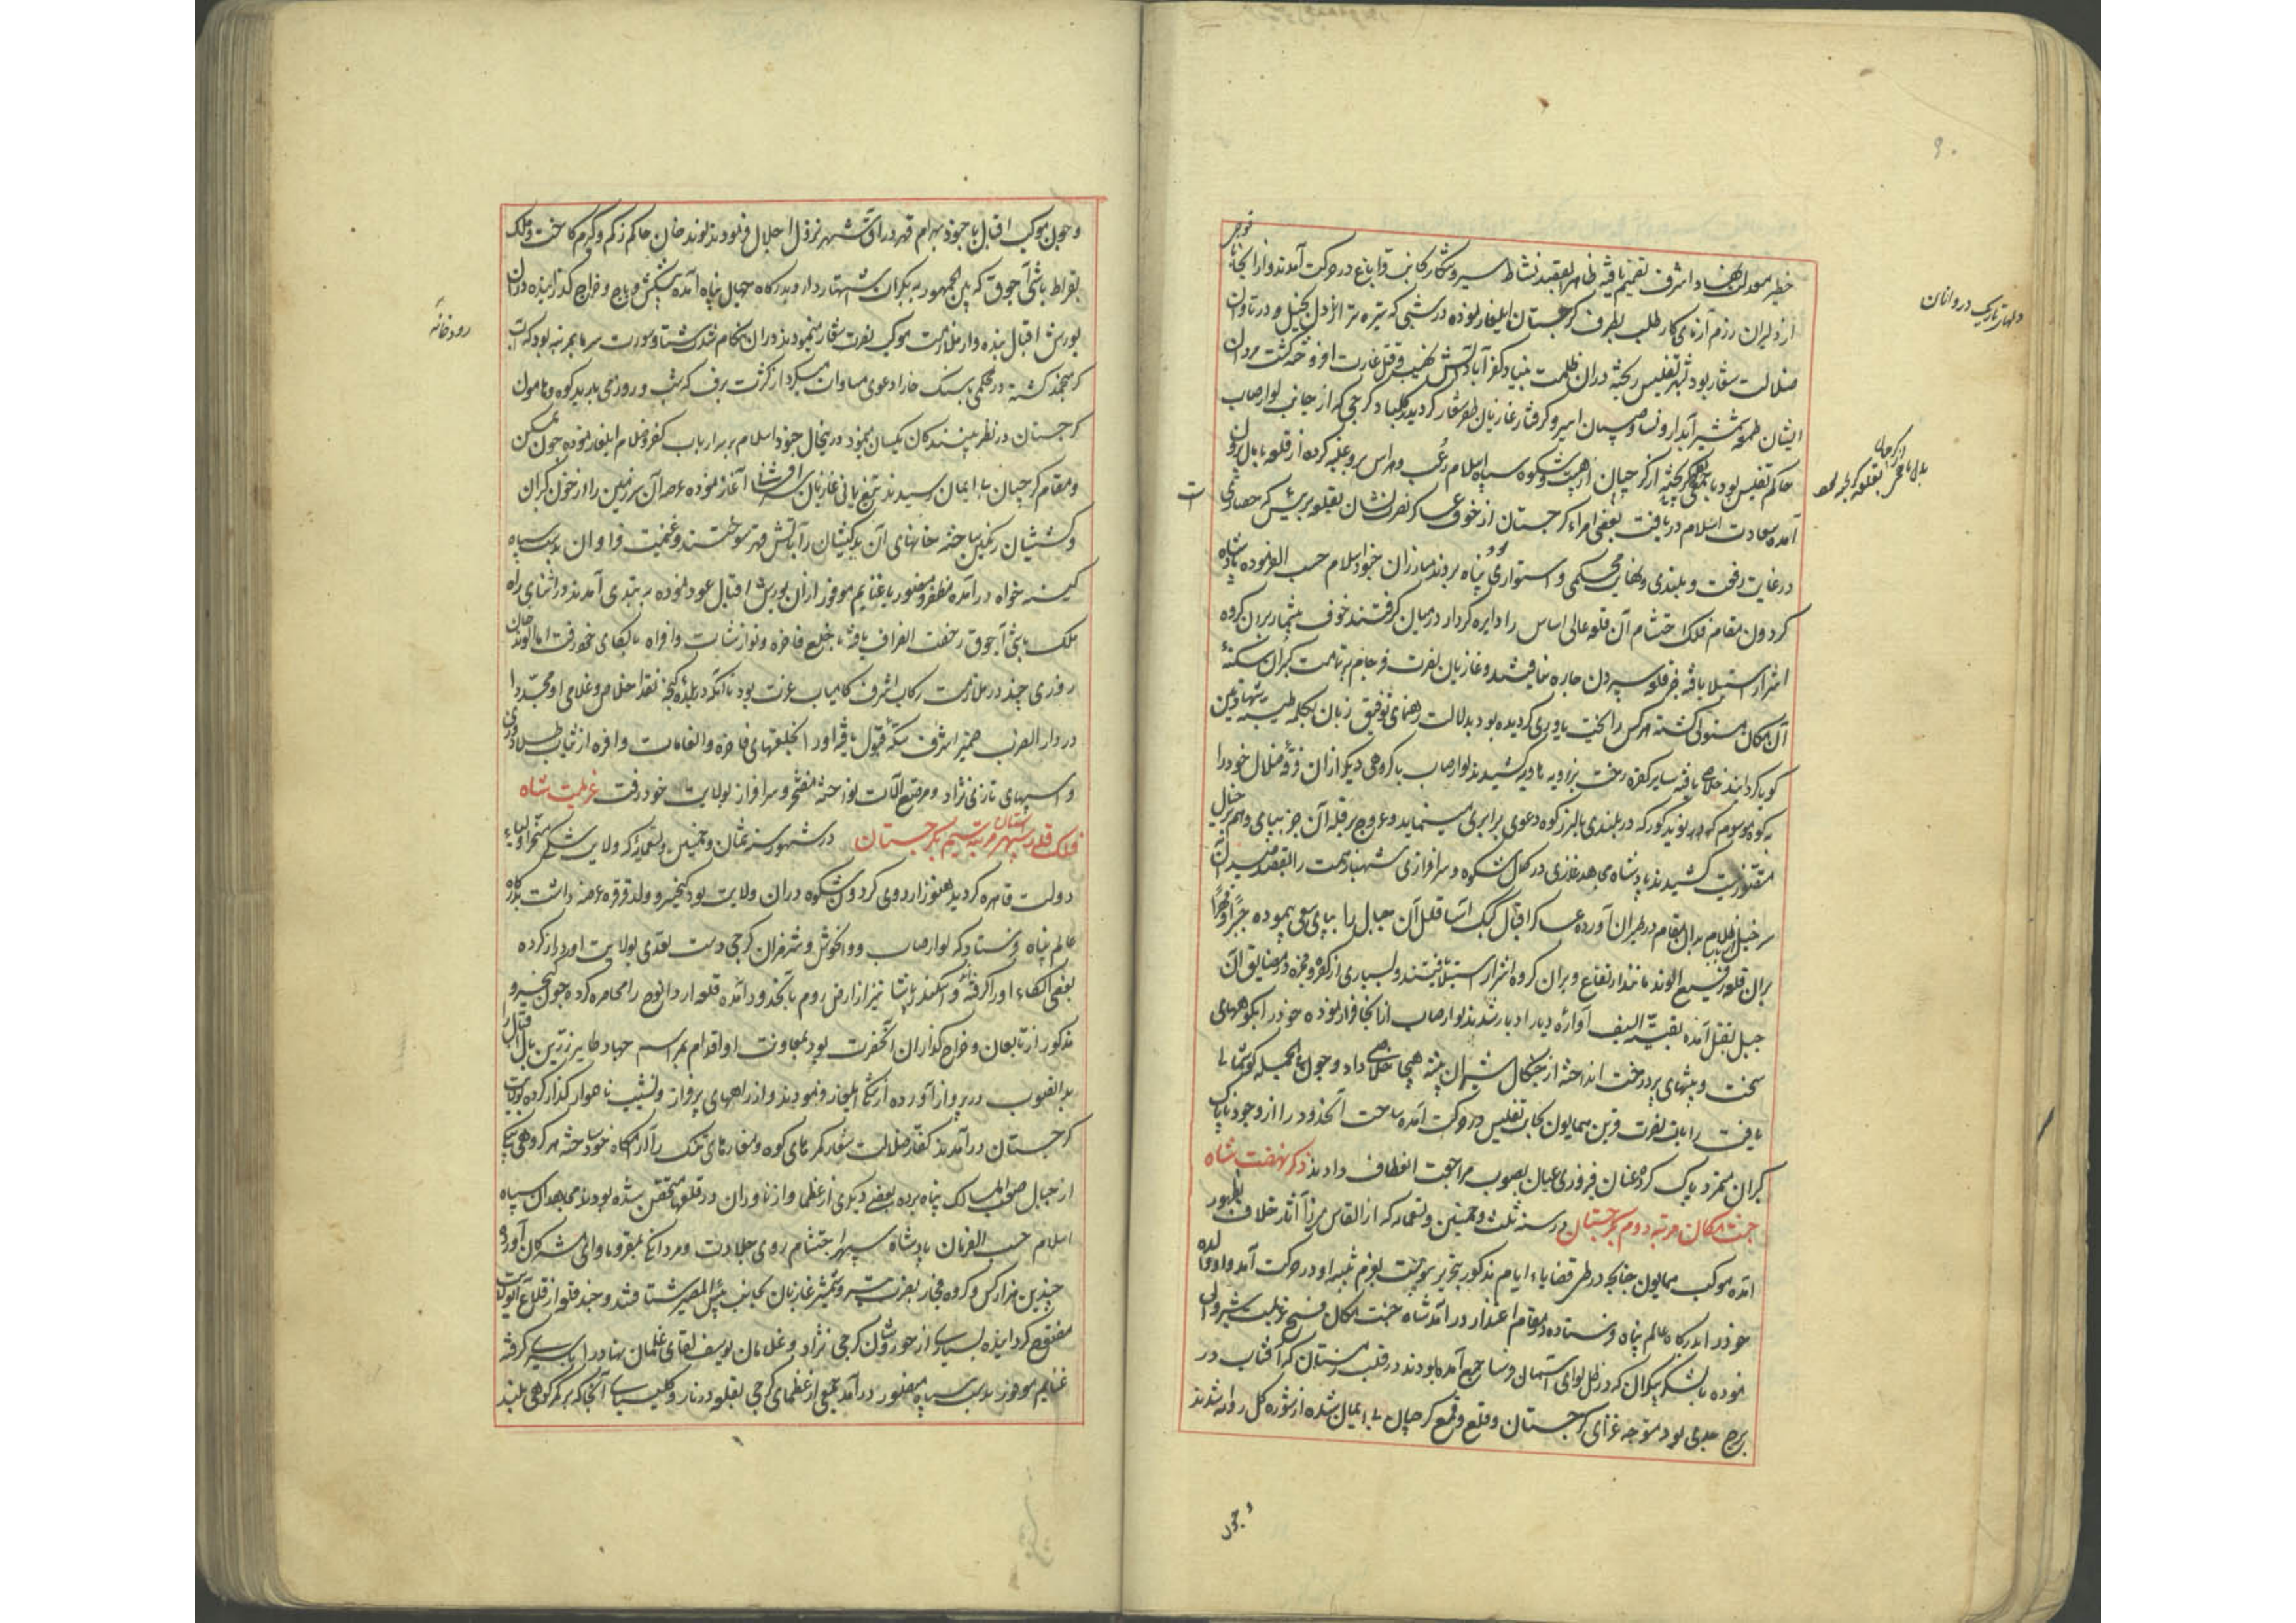 ۹۰
فوجی
خطیر معدلت نهاد اشرف تصمیم یافته ظاهرا بقصد نشاط سیر و شکار بجانب قراباغ در حرکت آمدند و از آنجا
از دلیران رزم آزمای کار طلب بطرف گرجستان ایلغار نموده در شبی که تیره تر از دل بخیل و
دلهای تاریک دروانان
ضلالت شعار بود بشهر تفلیس ریخته در آن ظلمت بنیاد کفر آباد آتش نهب و قتل و غارت افروخته گشت مردان
ایشان طعمه شمشیر آبدار و نسا و صبیان اسیر و گرفتار غازیان ظفر شعار گردید کلباد گرجی که از جانب لوارصاب
حاکم تفلیس بود با جمعی از گرجیان از هیبت و شکوه سپاه اسلام رعب و هراس برو غلبه کرده از قلعه بیرون
آمده سعادت اسلام دریافت بعضی امراء گرجستان از خوف عساکر نصرت نشان بقلعه برتیس که حصاری
در غایت رفعت و بلندی و نهایت محکمی و استواری پناه بردند مبارزان جنود اسلام حسب الفرموده پادشاه
گردون مقام فلک احتشام آن قلعه عالی اساس را دایره کردار در میان گرفتند خوف بیشمار بر آن گروه
اشرار استیلا یافته جز قلعه سپردن چاره نیافتند و غازیان نصرت فرجام بر تمامت گبران سکنه
آن مکان مستولی گشته هر کس را بخت یاوری کرده بود بدلالت رهنمای توفیق زبان بکلمه طیبه شهادتین
گویا گردانید خلاصی یافته سایر کفره رخت بزاویه هاویه کشیدند لوارصاب با گروهی دیگر از آن فرقه ضلال خود را
به کوه موسوم که در بلندی با البرز کوه دعوی برابری مینماید و عروج بر قله آن جز بپای وهم و خیال
متعذر است کشیدند پادشاه مجاهد غازی در کمال شکوه و سرافرازی شهباز همت را بقصد صید آن
سر خیل ظلام بدان مقام در طیران آورده عساکر اقبال کبک آسا قلل آن جبال را بپای سعی پیموده جبرا و قهرا
بر آن قلعه رفیع الوند مانند ارتفاع و بر آن گروه اشرار استیلا یافتند و بسیاری از کفره و فجره در مضایق آن
جبل بقتل آمده بقیة السیف آواره دیار ادبار شدند لوارصاب از آنجا فرار نموده خود را بکوههای
سخت و بیشهای پر درخت انداخته از چنگال شیران بیشه هیجا خلاصی داد و چون گوشمالی
یافت رایات نصرت قرین همایون بجانب تفلیس در حرکت آمده ساحت آنحدود را از وجود ناپاک
گبران متمرد پاک کرده عنان فیروزی عیان بصوب مراجعت انعطاف دادند ذکر نهضت شاه
جنت مکان مرتبه دوم بگرجستان در سنه ثلث و خمسین و تسعمایه که از القاس میرزا آثار خلاف بظهور
آمده موکب همایون چنانچه در طی قضایاء ایام مذکور بتحریر پیوست بعزم تنبیه او در حرکت آمد و او والده
خود را بدرگاه عالم پناه فرستاده در مقام اعتذار درآمد شاه جنت مکان فسخ عزیمت شیروان
نموده با لشکر بیکران که در ظل لوای آسمان فرسا جمع آمده بودند در قلب زمستان که آفتاب در
برج جدی بود متوجه غزای گرجستان و قلع و قمع گرجیان بی ایمان شده از شوره گل روانه شدند
و چون
و چون موکب اقبال با جنود بهرام قهر در آق شهر نزول اجلال فرمودند لوند خان حاکم زکم و گرم کاخت و ملک
بقراط باشی آچوق که بین الجمهور به بگران اشتهار دارد بدرگاه جهان پناه آمده پیشکش و باج و خراج گذرانیده در آن
یورش اقبال بنده وار ملازمت موکب نصرت شعار نمودند در آن هنگام شدت شتا و سورت سرما بمرتبه بود که آب
رودخانه
کر منجمد گشته در محکمی با سنگ خارا دعوی مساوات میکرد از کثرت برف که شب و روز می بارید کوه و هامون
گرجستان در نظر بینندگان یکسان مینمود در چنین حال جنود اسلام بر سر ارباب کفر و ظلام ایلغار نموده چون بمسکن
و مقام گرجیان بی ایمان رسیدند تیغ یمانی غازیان سرافشانی آغاز نموده عرصه آن سرزمین را از خون گبران
و کشیشان رنگین ساخته خانهای آن بدکیشان را بآتش قهر سوختند و غنیمت فراوان بدست سپاه
کینه خواه درآمده مظفر و منصور با غنایم موفور از آن یورش اقبال عود نموده به بتدی آمدند در اثنای راه
ملک باشی آچوق رخصت انصراف یافته با خلع فاخره و نوازشات وافره بالکای خود رفت اما لوند خان
روزی چند در ملازمت رکاب اشرف کامیاب عزت بود تا آنکه در بلده گنجه نقد اخلاص و غلامی او مجددا
در دار الضرب ضمیر اشرف سکه قبول یافته او را بخلعتهای فاخره و انعامات وافره از ثیاب طلا دوزی
و اسبهای تازی نژاد و مرصع آلات نواخته مفتخر و سرافراز بولایت خود رفت عزیمت شاه
فلک قدر سپهر آستان مرتبه سیم بگرجستان در شهور سنه ثمان و خمسین و تسعمایه که ولایت شکی مسخر اولیاء
دولت قاهره گردید هنوز اردوی گردون شکوه در آن ولایت بود کیخسرو ولد قرقره عرضه داشت بدرگاه
عالم پناه فرستاد که لوارصاب و واخوش و شرمزان گرجی دست تعدی بولایت او دراز کرده
بعضی الکاء او را گرفته و اسکندر پاشا نیز از ارض روم بآنحدود آمده قلعه اردانوج را محاصره کرده چون کیخسرو
مذکور از تابعان و خراج گذاران آنحضرت بود بمعاونت او اقدام بمراسم جهاد طایر زرین بال اقبال را
بدانصوب در پرواز آورده از شکی ایلغار فرمودند و از راههای پر فراز و نشیب ناهموار گذار کرده بولایت
گرجستان درآمدند کفار ضلالت شعار کمرهای کوه و مغارهای تنک را آرامگاه خود ساخته هر گروهی بیکی
از جبال صعب المسالک پناه برده بعضی دیگر از عظما و ازناوران در قلعها متحصن شده بودند مجاهدان سپاه
اسلام حسب الفرمان پادشاه سپهر احتشام روی جلادت و مردانگی بمقر و ماوای مشرکان آورده
چندین هزار کس از گروه فجار بضرب تیر و شمشیر غازیان بجانب بئس المصیر شتافتند و چند قلعه از قلاع آنولایت
مفتوح گردانیده بسیاری از حوروشان گرجی نژاد و غلامان یوسف لقای غلمان نهاد را باسیری گرفته
غنایم موفور بدست سپاه منصور درآمد جمعی از عظمای گرجی بقلعه در نار و کلیسیای آنجا که بر کمر کوهی بلند